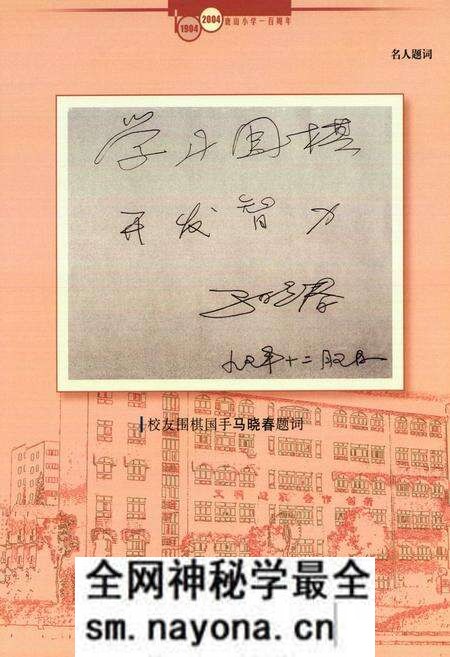 1904 2004 鹿山小学一百周年
名人题词
学习围棋
开发智力
马晓春
校友围棋国手马晓春题词
全网神秘学最全
sm.nayona.cn